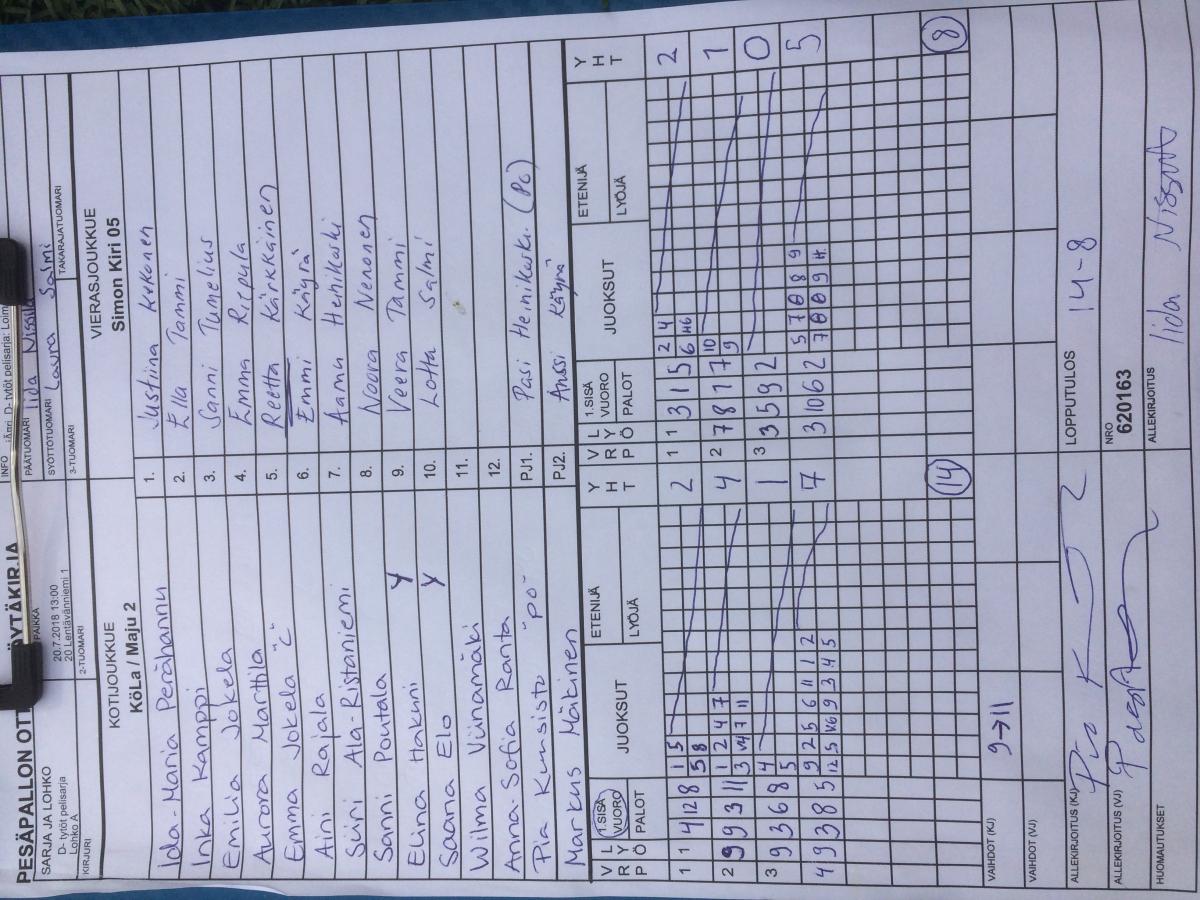 PESÄPALLON OTT ÖYTÄKIRJA
SARJA JA LOHKO
D- tytöt pelisarja
Lohko A
PAIKKA
20.7.2018 13:00
20 Lentävänniemi 1
INFO D- tytöt pelisarja: Loim
PÄÄTUOMARI Iida Nissilä
SYÖTTÖTUOMARI Laura Salmi
TAKARAJATUOMARI
KIRJURI
2-TUOMARI
3-TUOMARI
KOTIJOUKKUE
KöLa / Maju 2
VIERASJOUKKUE
Simon Kiri 05
Ida-Maria Perähannu 1. Justiina Kokonen
Inka Kamppi 2. Ella Tammi
Emilia Jokela 3. Sanni Tumelius
Aurora Marttila 4. Emma Riipula
Emma Jokela "C" 5. Reetta Kärkkäinen
Aini Rajala 6. Emmi Käyrä
Siiri Ala-Ristaniemi 7. Aama Heinikoski
Sanni Poutala 8. Noora Nenonen
Elina Hakuni Y 9. Veera Tammi
Saana Elo Y 10. Lotta Salmi
Wilma Viinamäki 11.
Anna-Sofia Ranta 12.
Pia Kunsisto "po" PJ1. Pasi Heinikoski (Pc)
Markus Mäkinen PJ2. Anssi Käyrä
V R P L Y Ö 1.SISÄ VUORO PALOT JUOKSUT ETENIJÄ LYÖJÄ Y H T
V R P L Y Ö 1.SISÄ VUORO PALOT JUOKSUT ETENIJÄ LYÖJÄ Y H T
1 1 4 12 8 1 5 2
5 8
1 1 3 1 5 2 4 2
6 H6
2 9 9 3 11 1 2 4 7 4
3 V4 7 11
2 7 8 1 7 10 1
9
3 9 3 6 8 4 1
5
3 3 5 9 2 0
4 9 3 8 5 9 2 5 6 11 1 2 7
12 5 V6 9 3 4 5
3 10 6 2 5 7 8 8 9 5
14
8
VAIHDOT (KJ) 9→11
VAIHDOT (VJ)
ALLEKIRJOITUS (KJ)
LOPPUTULOS 14-8
ALLEKIRJOITUS (VJ)
NRO
620163
HUOMAUTUKSET
ALLEKIRJOITUS Iida Nissilä